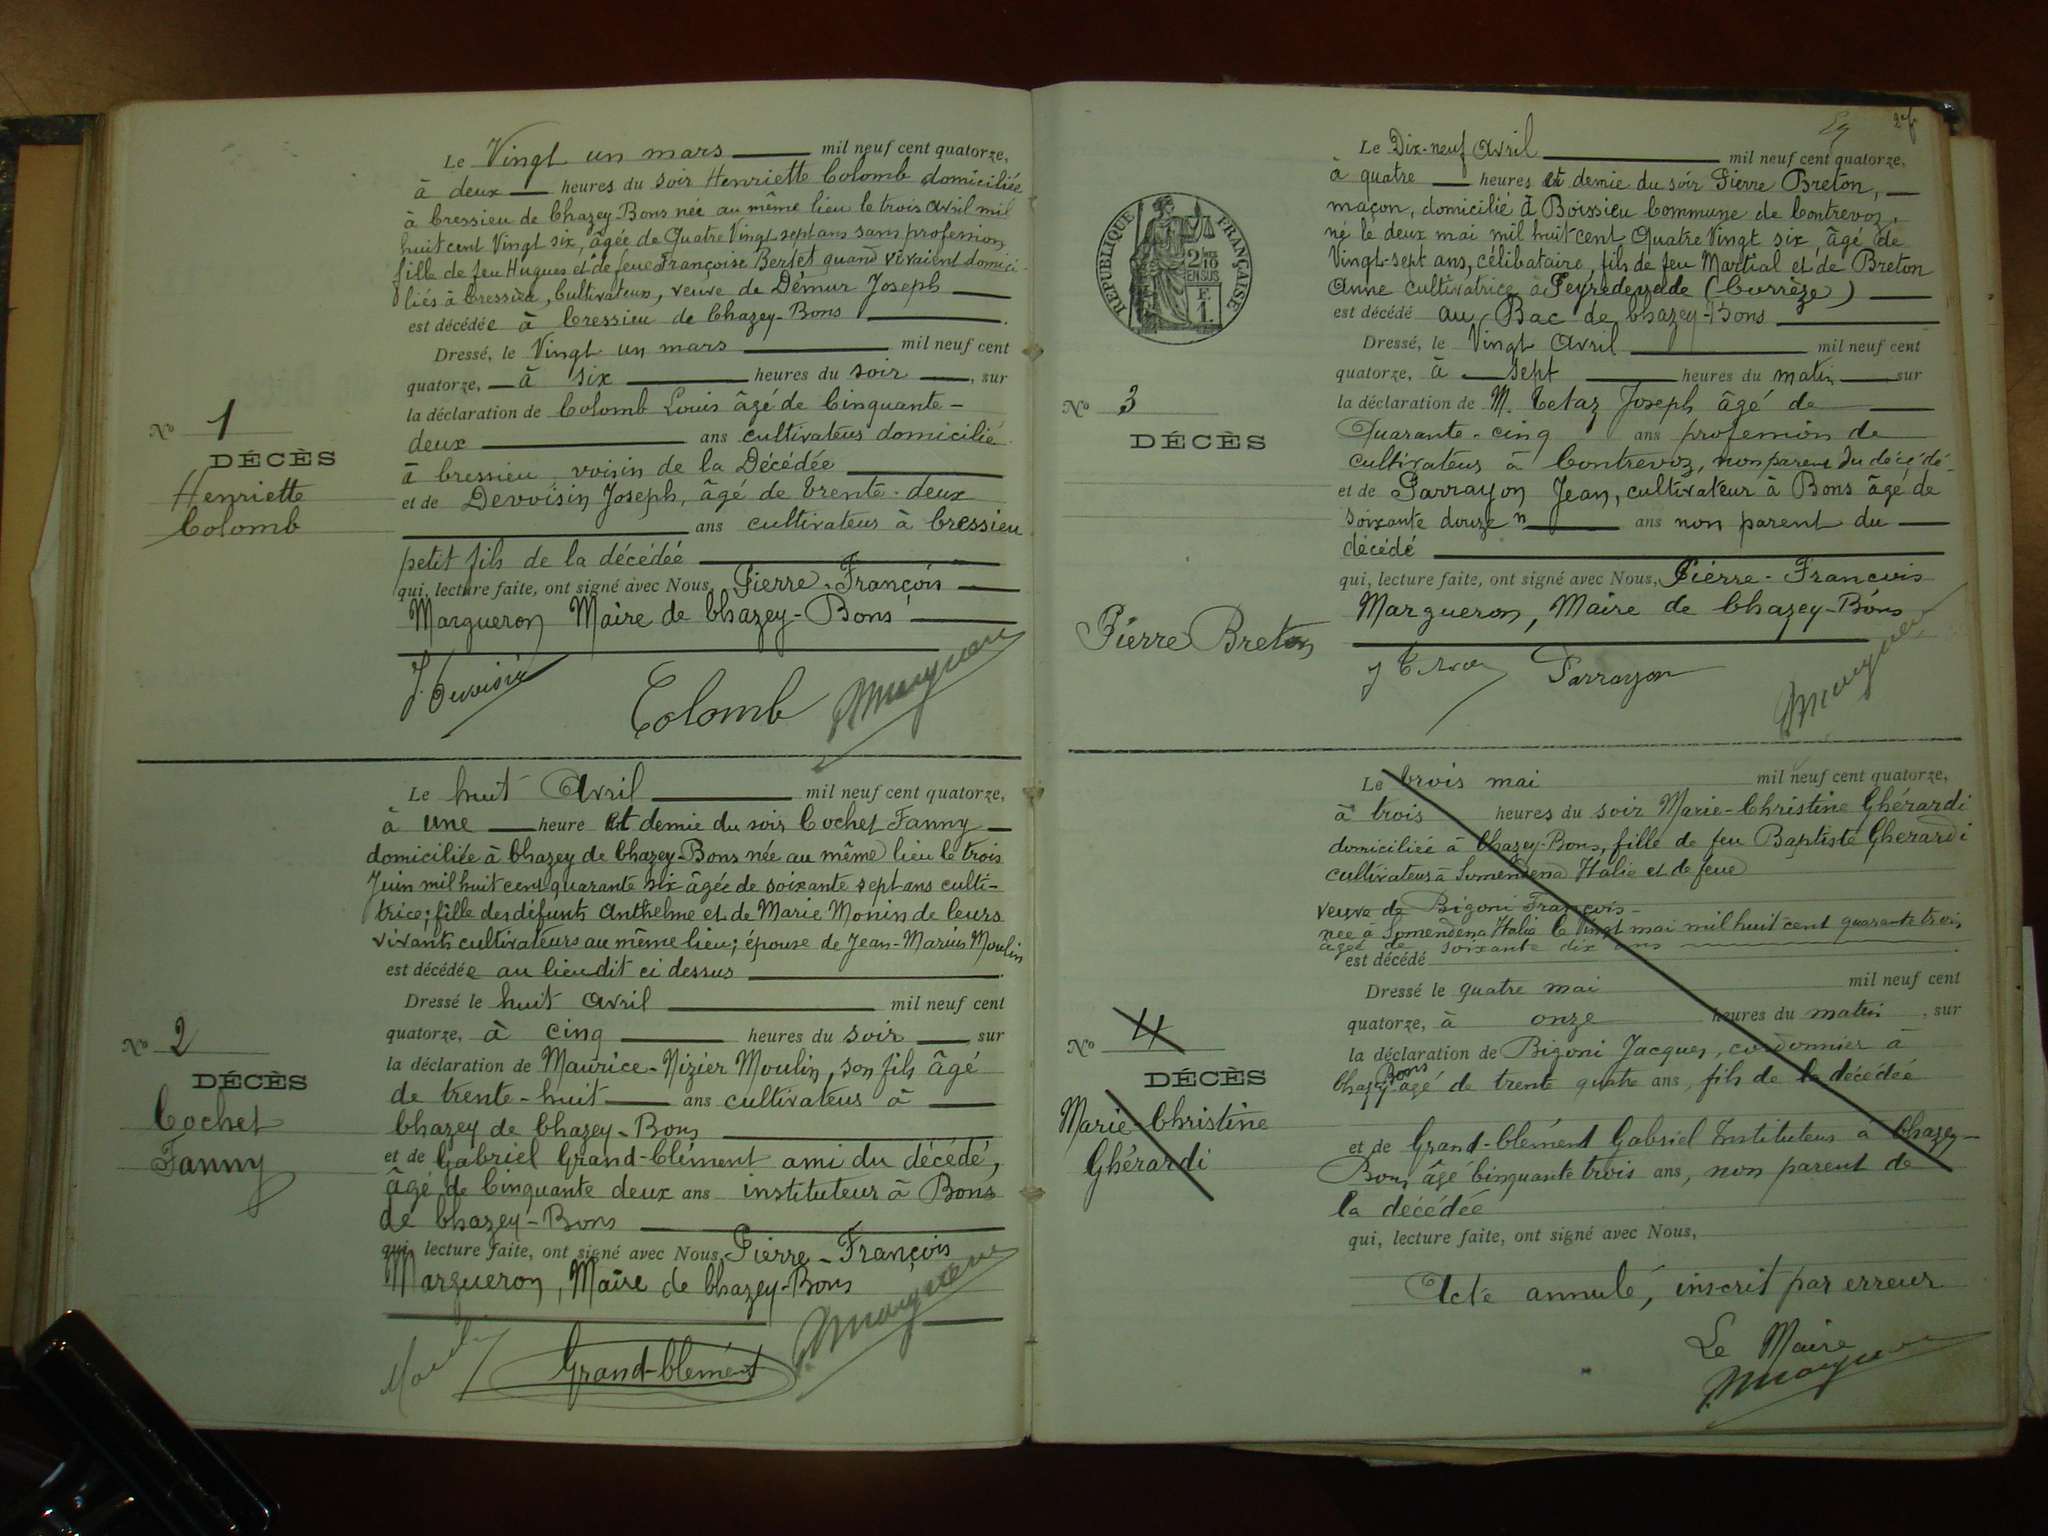 Le Vingt un mars mil neuf cent quatorze,
à deux heures du soir Henriette Colomb domiciliée
à Cressieu de Chazey-Bons née au même lieu le trois avril mil
huit cent Vingt six, âgée de Quatre Vingt sept ans sans profession
fille de feu Hugues et de feue Françoise Bertet quand vivaient domici-
liés à Cressieu, Cultivateurs, veuve de Démur Joseph
est décédée à Cressieu de Chazey-Bons
Dressé, le Vingt un mars mil neuf cent
quatorze, à six heures du soir, sur
la déclaration de Colomb Louis âgé de Cinquante-
deux ans cultivateur domicilié
à Cressieu voisin de la Décédée
et de Devoisin Joseph, âgé de trente-deux
ans cultivateur à Cressieu
petit fils de la décédée
qui, lecture faite, ont signé avec Nous, Pierre-François
Margueron Maire de Chazey-Bons
Colomb
No 1
DÉCÈS
Henriette
Colomb
Le huit Avril mil neuf cent quatorze,
à une heure et demie du soir Cochet Fanny
domiciliée à Chazey de Chazey-Bons née au même lieu le trois
Juin mil huit cent quarante six âgée de soixante sept ans culti-
trice; fille des défunts Anthelme et de Marie Monin de leurs
vivants cultivateurs au même lieu; épouse de Jean-Marius Moulin
est décédée au lieu dit ci dessus
Dressé le huit avril mil neuf cent
quatorze, à cinq heures du soir sur
la déclaration de Maurice-Nizier Moulin, son fils âgé
de trente-huit ans cultivateur à
Chazey de Chazey-Bons
et de Gabriel Grand-Clément ami du décédé,
âgé de Cinquante deux ans instituteur à Bons
de Chazey-Bons
qui, lecture faite, ont signé avec Nous, Pierre-François
Margueron, Maire de Chazey-Bons
Grand-Clément
No 2
DÉCÈS
Cochet
Fanny
Le Dix-neuf Avril mil neuf cent quatorze,
à quatre heures et demie du soir Pierre Breton,
maçon, domicilié à Boissieu Commune de Contrevoz,
né le deux mai mil huit cent Quatre Vingt six, âgé de
Vingt-sept ans, célibataire, fils de feu Martial et de Breton
Anne cultivatrice à (Corrèze)
est décédé au Bac de Chazey-Bons
Dressé, le Vingt Avril mil neuf cent
quatorze, à sept heures du matin sur
la déclaration de M. Tetaz Joseph âgé de
Quarante-cinq ans profession de
cultivateur à Contrevoz, non parent du décédé-
et de Parrayon Jean, cultivateur à Bons âgé de
soixante douze ans non parent du
décédé
qui, lecture faite, ont signé avec Nous, Pierre-François
Margueron, Maire de Chazey-Bons
Parrayon
RÉPUBLIQUE FRANÇAISE
2/10 EN SUS
F. 1.
No 3
DÉCÈS
Pierre Breton
Le trois mai mil neuf cent quatorze,
à trois heures du soir Marie-Christine Ghérardi
domiciliée à Chazey-Bons, fille de feu Baptiste Gherardi
cultivateur à Somendena Italie et de feue
veuve de Bigoni François
née à Somendena Italie le Vingt mai mil huit cent quarante trois
âgée de soixante dix ans
est décédé
Dressé le quatre mai mil neuf cent
quatorze, à onze heures du matin, sur
la déclaration de Bigoni Jacques, cordonnier à
Chazey Bons âgé de trente quatre ans, fils de la décédée
et de Grand-Clément Gabriel Instituteur à Chazey-
Bons, âgé Cinquante trois ans, non parent de
la décédée
qui, lecture faite, ont signé avec Nous,
Acte annulé, inscrit par erreur
Le Maire
No 4
DÉCÈS
Marie-Christine
Ghérardi